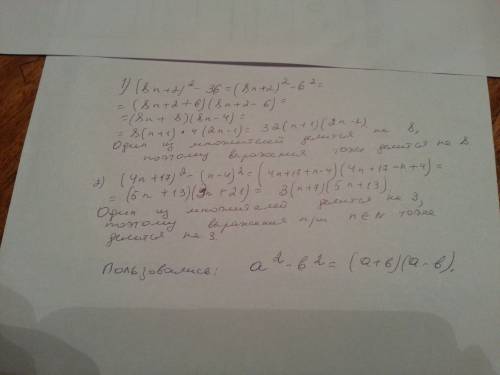 1) (8n+2)² - 36 = (8n+2)² - 6² =
= (8n+2+6)(8n+2-6) =
= (8n+8)(8n-4) =
= 8(n+1)·4(2n-1) = 32(n+1)(2n-1)
Один из множителей делится на 8,
поэтому выражения тоже делится на 8.
2) (4n+17)² - (n-4)² = (4n+17+n-4)(4n+17-n+4) =
= (5n+13)(3n+21) = 3(n+7)(5n+13)
Один из множителей делится на 3,
поэтому выражения при n∈N тоже
делится на 3.
Пользовались: a² - b² = (a+b)(a-b).